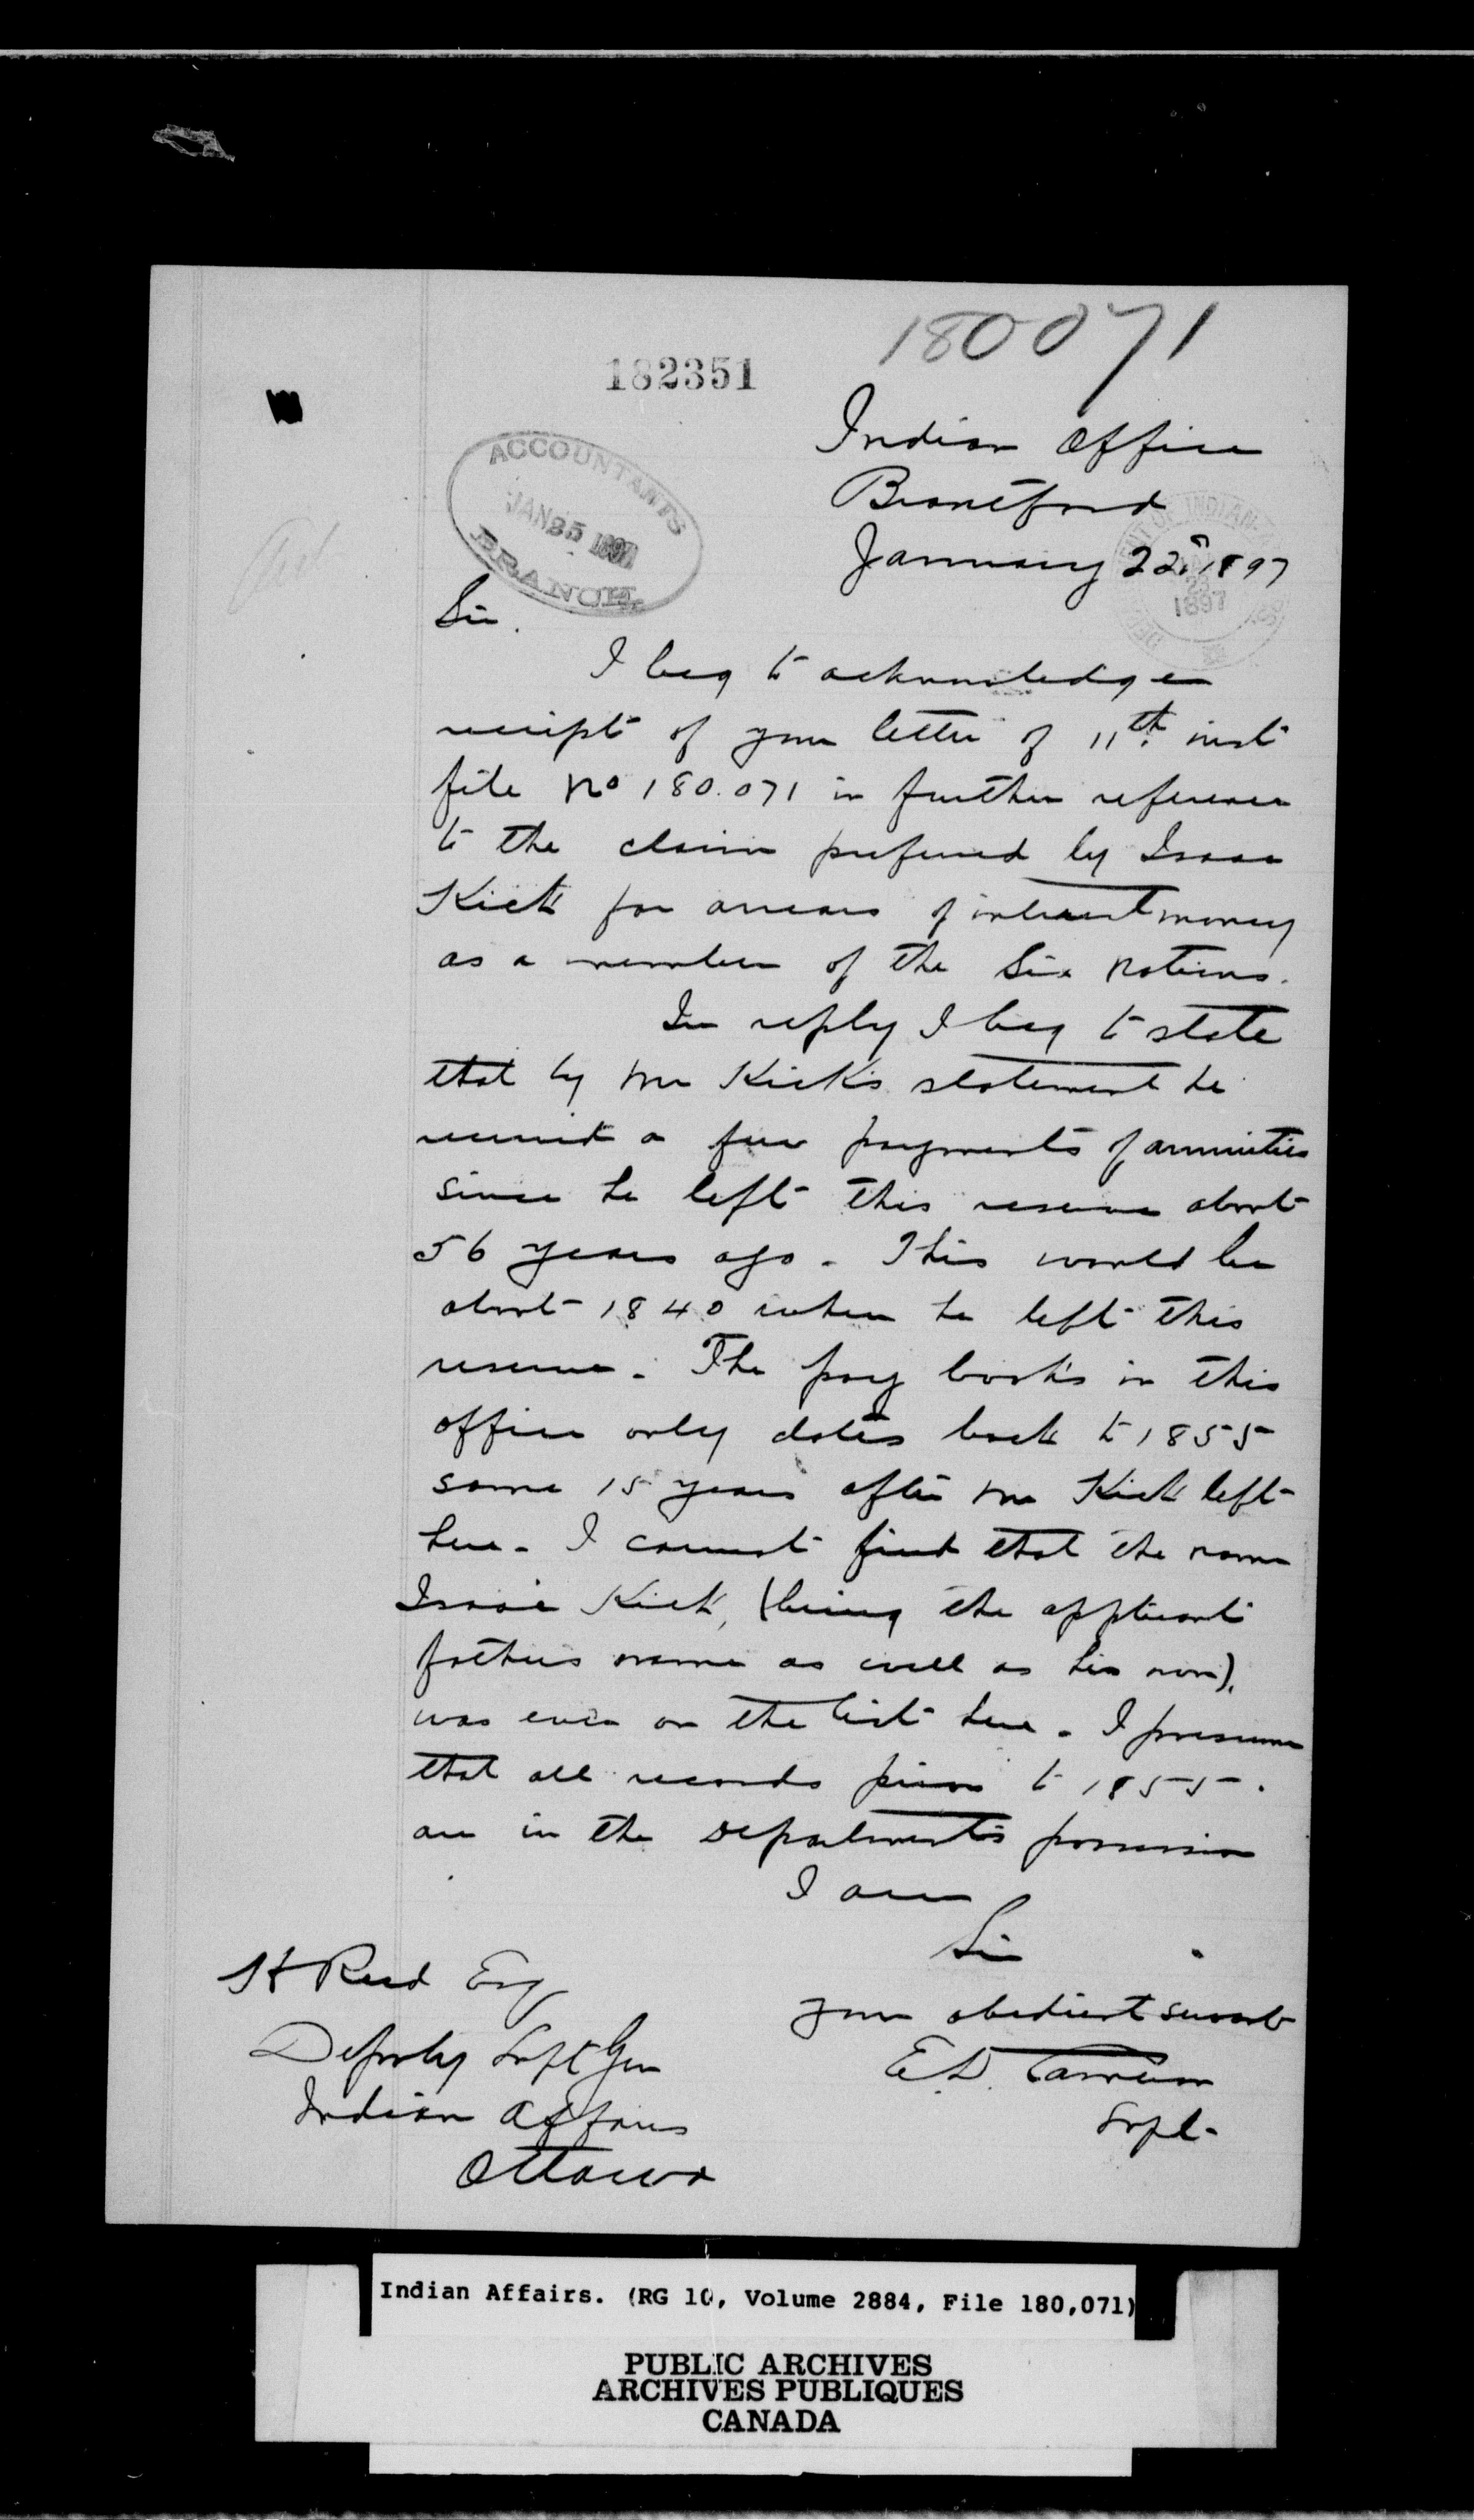 180071
182351
Indian Office
Brantford
January 22d 1897
ACCOUNTANTS
JAN 25 1897
BRANCH
DEPARTMENT OF INDIAN AFFAIRS
23
1897
Sir.
I beg to acknowledge
receipt of your letter of 11th inst
file No 180.071 in further reference
to the claim prefered by Isaac
Kick for arrears of interest money
as a member of the Six Nations.
In reply I beg to state
that by Mr Kick's statement he
received a few payments of annuities
since he left this reserve about
56 years ago. This would be
about 1840 when he left this
reserve. The pay books in this
office only dates back to 1855
some 15 years after Mr Kick left
here. I cannot find that the name
Isaac Kick, (being the applicants
fathers name as well as his own),
was ever on the list here. I presume
that all records prior to 1855.
are in the Department's possession
I am
Sir
your obedient servant
E.D. Cameron
Supt.
H Reed Esq
Deputy Supt Gen
Indian Affairs
Ottawa
Indian Affairs. (RG 10, Volume 2884, File 180,071)
PUBLIC ARCHIVES
ARCHIVES PUBLIQUES
CANADA